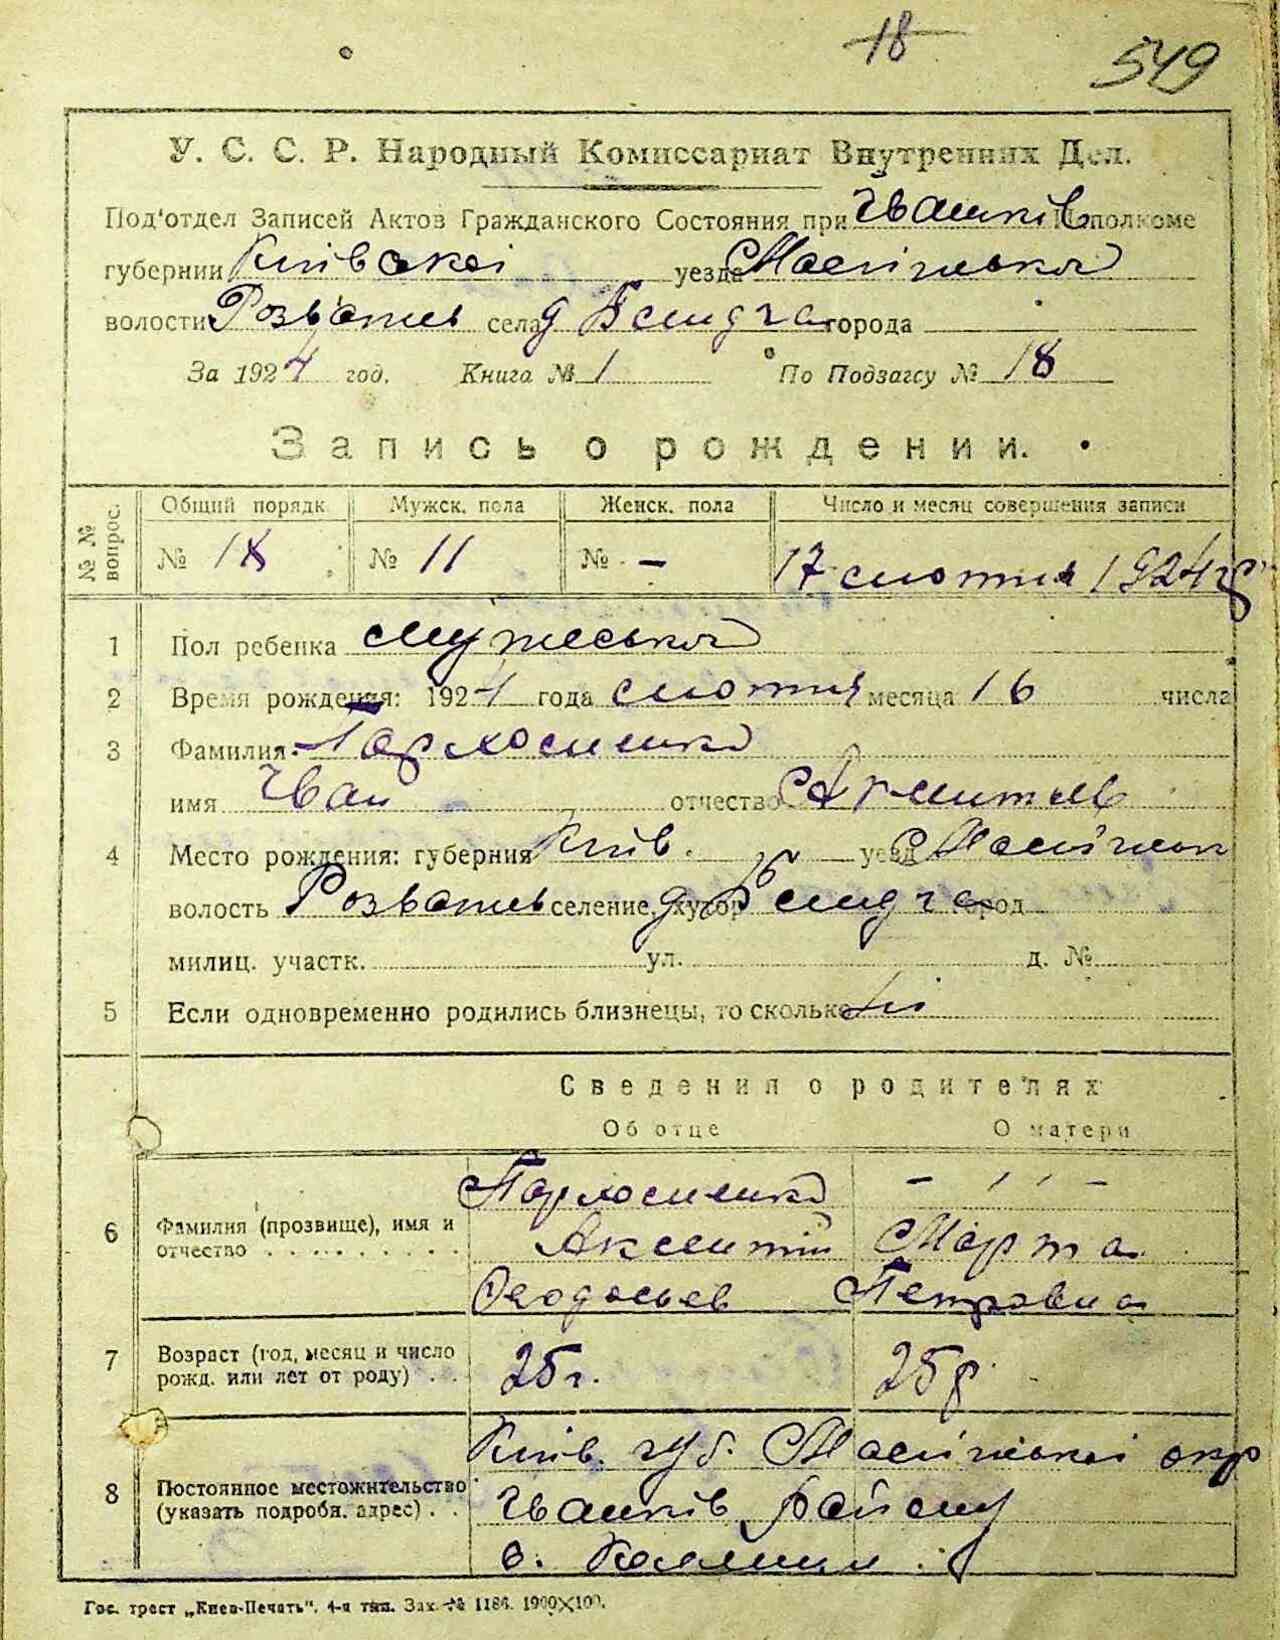 18
549
У. С. С. Р. Народный Комиссариат Внутренних Дел.
Под'отдел Записей Актов Гражданского Состояния при Іванків Исполкоме
губернии Київскої уезда
волости Розважів села города
За 1924 год. Книга № 1 По Подзагсу № 18
Запись о рождении.
№ № вопрос. Общий порядк Мужск. пола Женск. пола Число и месяц совершения записи
№ 18 № 11 № - 17 лютня 1924 р
1 Пол ребенка мужеська
2 Время рождения: 1924 года лютня месяца 16 числа
3 Фамилия:
имя Іван отчество
4 Место рождения: губерния Київ. уезд
волость Розважів селение, хутор город
милиц. участк. ул. д. №
5 Если одновременно родились близнецы, то сколько ні
Сведения о родителях
Об отце О матери
6 Фамилия (прозвище), имя и отчество
- ' ' -
Аксентій Марта
Феодосьев Петровна
7 Возраст (год, месяц и число рожд. или лет от роду) 25 г. 25 р.
8 Постоянное местожительство (указать подробн. адрес)
Київ. губ. окр
Іванків району
с.
Гос. трест „Киев-Печать". 4-я тип. Зак. № 1186. 1900×100.